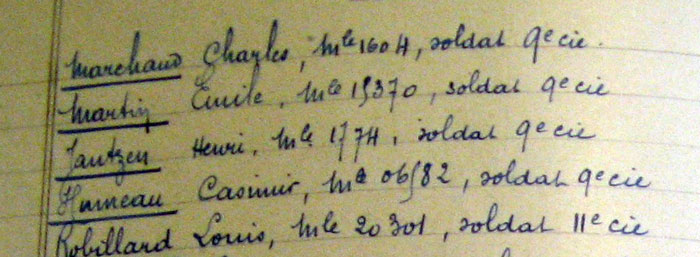 Marchaud Charles, mle 1604, soldat 9e cie.
Martin Émile, mle 15370, soldat 9e cie
Jautzen Henri, mle 1774, soldat 9e cie
Humeau Casimir, mle 06582, soldat 9e cie
Robillard Louis, mle 20301, soldat 11e cie